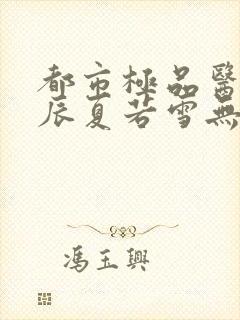 都市極品醫
辰夏若雪無
馮玉興